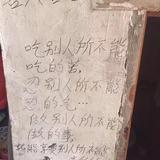 吃别人所不能
吃的苦,
忍别人所不能
忍的气…
做别人所不能
做的事,